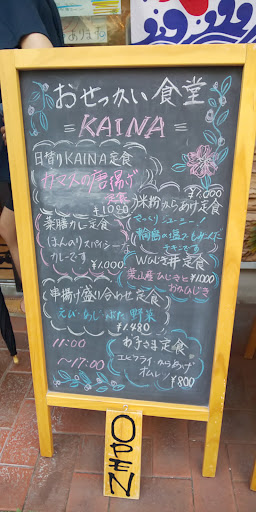 おせっかい食堂
=KAINA=
日替りKAINA定食
カマスの唐揚げ
定食
¥1080
米粉からあげ定食
¥1,000
薬膳カレー定食
ほんのりスパイシーな
カレーです
¥1,000
Wひじき丼定食
葉山産ひじきと
¥1000
おかひじき
串揚げ盛り合わせ定食
えび・あじ・ぶた・野菜
¥1.480
お子さま定食
エビフライ からあげ
オムレツ
¥800
11:00
〜17:00
OPEN